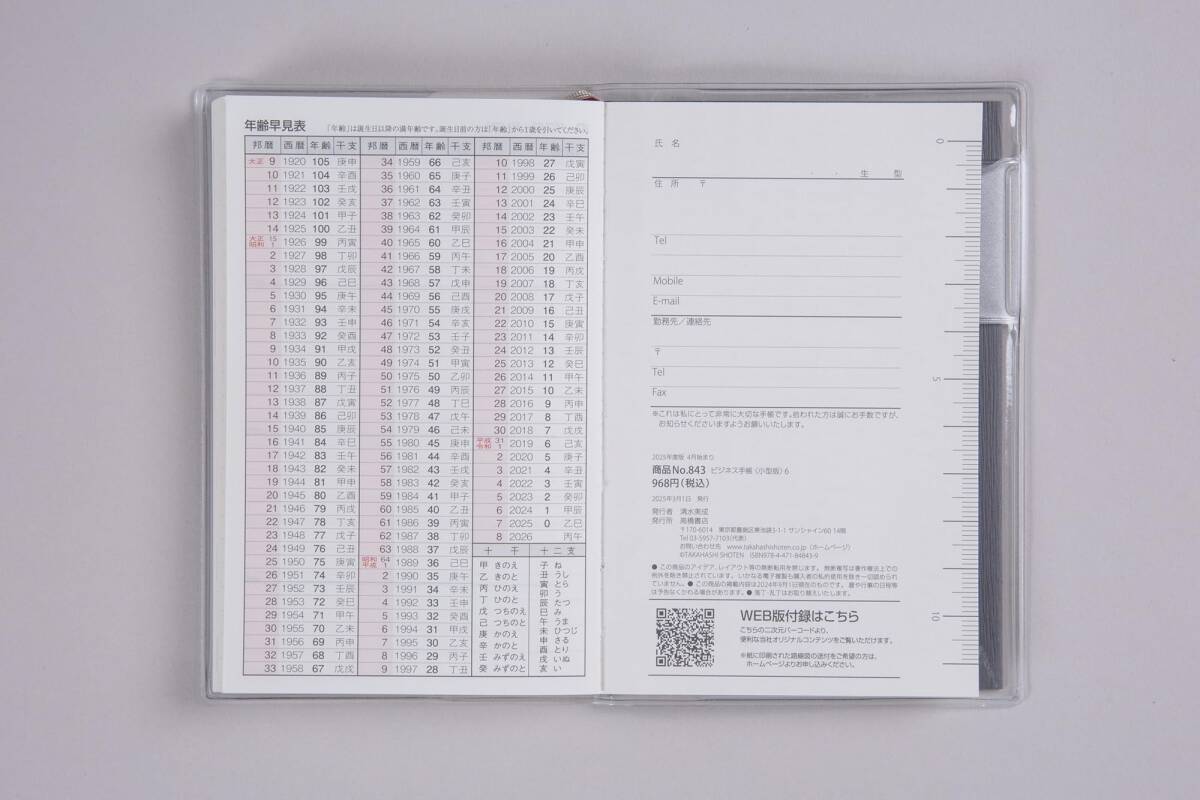 年齢早見表 「年齢」は誕生日以降の満年齢です。誕生日前の方は「年齢」から1歳を引いてください。
邦暦 西暦 年齢 干支
大正 9 1920 105 庚申
10 1921 104 辛酉
11 1922 103 壬戌
12 1923 102 癸亥
13 1924 101 甲子
14 1925 100 乙丑
大正 15 昭和 1 1926 99 丙寅
2 1927 98 丁卯
3 1928 97 戊辰
4 1929 96 己巳
5 1930 95 庚午
6 1931 94 辛未
7 1932 93 壬申
8 1933 92 癸酉
9 1934 91 甲戌
10 1935 90 乙亥
11 1936 89 丙子
12 1937 88 丁丑
13 1938 87 戊寅
14 1939 86 己卯
15 1940 85 庚辰
16 1941 84 辛巳
17 1942 83 壬午
18 1943 82 癸未
19 1944 81 甲申
20 1945 80 乙酉
21 1946 79 丙戌
22 1947 78 丁亥
23 1948 77 戊子
24 1949 76 己丑
25 1950 75 庚寅
26 1951 74 辛卯
27 1952 73 壬辰
28 1953 72 癸巳
29 1954 71 甲午
30 1955 70 乙未
31 1956 69 丙申
32 1957 68 丁酉
33 1958 67 戊戌
邦暦 西暦 年齢 干支
34 1959 66 己亥
35 1960 65 庚子
36 1961 64 辛丑
37 1962 63 壬寅
38 1963 62 癸卯
39 1964 61 甲辰
40 1965 60 乙巳
41 1966 59 丙午
42 1967 58 丁未
43 1968 57 戊申
44 1969 56 己酉
45 1970 55 庚戌
46 1971 54 辛亥
47 1972 53 壬子
48 1973 52 癸丑
49 1974 51 甲寅
50 1975 50 乙卯
51 1976 49 丙辰
52 1977 48 丁巳
53 1978 47 戊午
54 1979 46 己未
55 1980 45 庚申
56 1981 44 辛酉
57 1982 43 壬戌
58 1983 42 癸亥
59 1984 41 甲子
60 1985 40 乙丑
61 1986 39 丙寅
62 1987 38 丁卯
63 1988 37 戊辰
昭和 64 平成 1 1989 36 己巳
2 1990 35 庚午
3 1991 34 辛未
4 1992 33 壬申
5 1993 32 癸酉
6 1994 31 甲戌
7 1995 30 乙亥
8 1996 29 丙子
9 1997 28 丁丑
邦暦 西暦 年齢 干支
10 1998 27 戊寅
11 1999 26 己卯
12 2000 25 庚辰
13 2001 24 辛巳
14 2002 23 壬午
15 2003 22 癸未
16 2004 21 甲申
17 2005 20 乙酉
18 2006 19 丙戌
19 2007 18 丁亥
20 2008 17 戊子
21 2009 16 己丑
22 2010 15 庚寅
23 2011 14 辛卯
24 2012 13 壬辰
25 2013 12 癸巳
26 2014 11 甲午
27 2015 10 乙未
28 2016 9 丙申
29 2017 8 丁酉
30 2018 7 戊戌
平成 31 令和 1 2019 6 己亥
2 2020 5 庚子
3 2021 4 辛丑
4 2022 3 壬寅
5 2023 2 癸卯
6 2024 1 甲辰
7 2025 0 乙巳
8 2026 丙午
十干 十二支
甲 きのえ
乙 きのと
丙 ひのえ
丁 ひのと
戊 つちのえ
己 つちのと
庚 かのえ
辛 かのと
壬 みずのえ
癸 みずのと
子 ね
丑 うし
寅 とら
卯 う
辰 たつ
巳 み
午 うま
未 ひつじ
申 さる
酉 とり
戌 いぬ
亥 い
氏名
・ ・ 生 型
住所 〒
Tel
Mobile
E-mail
勤務先／連絡先
〒
Tel
Fax
※これは私にとって非常に大切な手帳です。拾われた方は誠にお手数ですが、
お知らせくださいますようお願いいたします。
2025年度版 4月始まり
商品No.843 ビジネス手帳〈小型版〉6
968円（税込）
2025年3月1日 発行
発行者 清水美成
発行所 高橋書店
〒170-6014 東京都豊島区東池袋3-1-1 サンシャイン60 14階
Tel 03-5957-7103（代表）
お問い合わせ先 www.takahashishoten.co.jp（ホームページ）
©TAKAHASHI SHOTEN ISBN978-4-471-84843-9
● この商品のアイデア、レイアウト等の無断転用を禁じます。 無断複写は著作権法上での
例外を除き禁止されています。 いかなる電子複製も購入者の私的使用を除き一切認められ
ていません。● この商品の掲載内容は2024年9月1日現在のものです。 暦や行事の日程等
は予告なくかわる場合があります。● 落丁・乱丁はお取り替えいたします。
WEB版付録はこちら
こちらの二次元バーコードより、
便利な当社オリジナルコンテンツをご覧いただけます。
※紙に印刷された路線図の送付をご希望の方は、
ホームページよりお申し込みください。
0
5
10